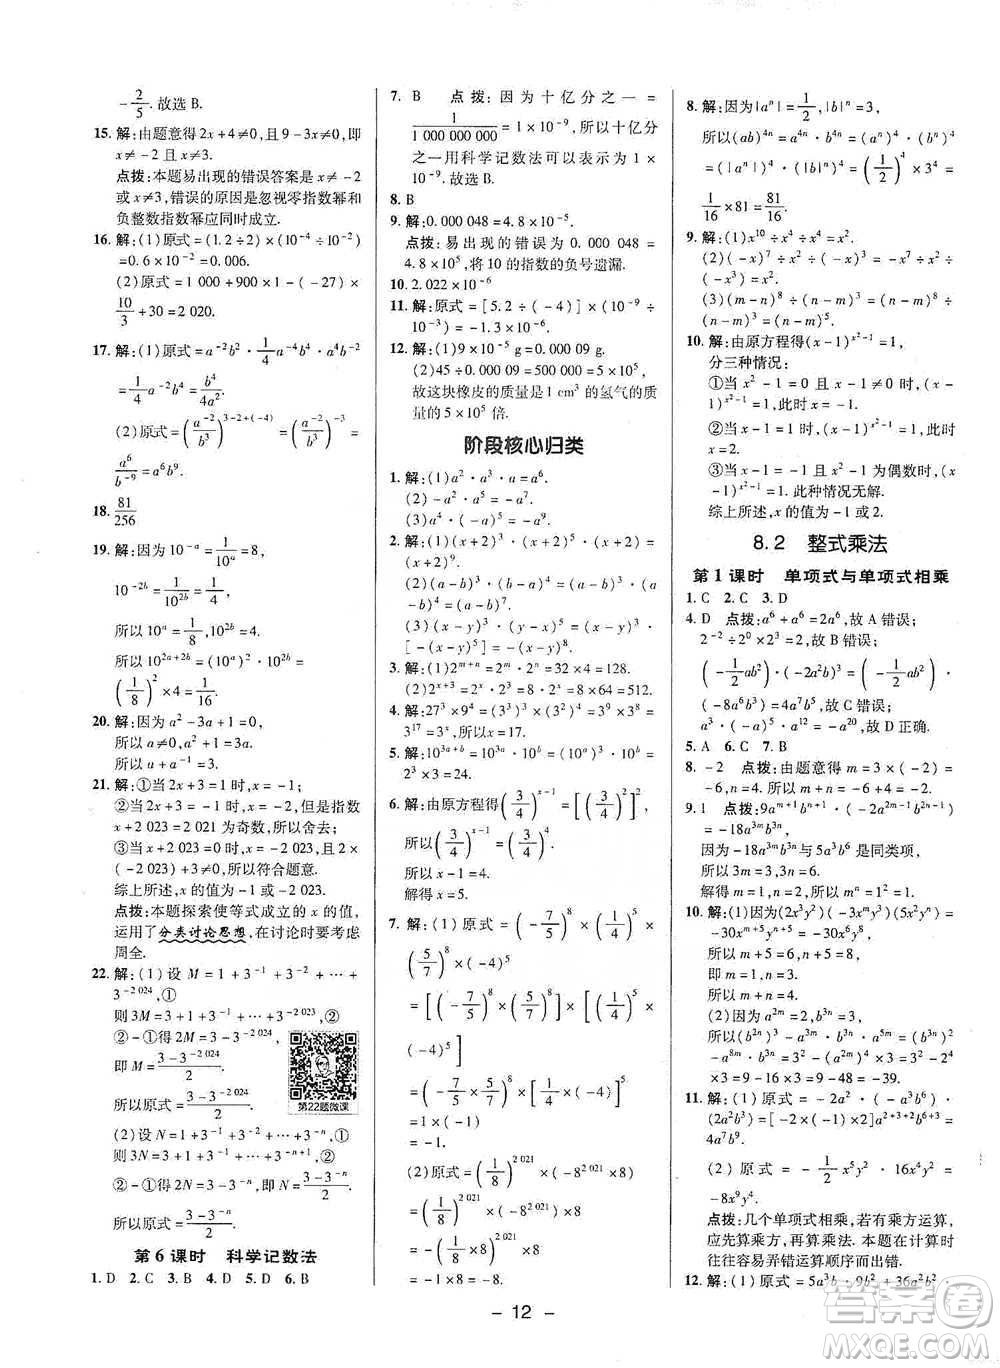 -2/5.故选 B.
15. 解:由题意得 2x+4≠0,且 9-3x≠0,即
x≠-2 且 x≠3.
点拨:本题易出现的错误答案是 x≠-2
或 x≠3,错误的原因是忽视零指数幂和
负整数指数幂应同时成立.
16. 解:(1)原式=(1.2÷2)×(10⁻⁴÷10⁻²)
=0.6×10⁻²=0.006.
(2)原式=1 000+900×1/9-(-27)×
10/3+30=2 020.
17. 解:(1)原式=a⁻²b²·1/4a⁻⁴·a⁴b²
=1/4a⁻²b⁴=b⁴/4a².
(2)原式=(a⁻²/b³)³⁻²⁺⁽⁻⁴⁾=(a⁻²/b³)⁻³=
a⁶/b⁻⁹=a⁶b⁹.
18. 81/256
19. 解:因为 10⁻ᵃ=1/10ᵃ=8,
10⁻²ᵇ=1/10²ᵇ=1/4,
所以 10ᵃ=1/8,10²ᵇ=4.
所以 10²ᵃ⁺²ᵇ=(10ᵃ)²·10²ᵇ=
(1/8)²×4=1/16.
20. 解:因为 a²-3a+1=0,
所以 a≠0,a²+1=3a.
所以 a+a⁻¹=3.
21. 解:①当 2x+3=1 时,x=-1;
②当 2x+3=-1 时,x=-2,但是指数
x+2 023=2 021 为奇数,所以舍去;
③当 x+2 023=0 时,x=-2 023,且 2×
(-2 023)+3≠0,所以符合题意.
综上所述,x 的值为-1 或-2 023.
点拨:本题探索使等式成立的 x 的值,
运用了分类讨论思想,在讨论时要考虑
周全.
22. 解:(1)设 M=1+3⁻¹+3⁻²+…+
3⁻²⁰²⁴,①
则 3M=3+1+3⁻¹+…+3⁻²⁰²³,②
②-①得 2M=3-3⁻²⁰²⁴,
即 M=3-3⁻²⁰²⁴/2.
所以原式=3-3⁻²⁰²⁴/2.
第22题微课
(2)设 N=1+3⁻¹+3⁻²+…+3⁻ⁿ,①
则 3N=3+1+3⁻¹+…+3⁻ⁿ⁺¹,②
②-①得 2N=3-3⁻ⁿ,即 N=3-3⁻ⁿ/2.
所以原式=3-3⁻ⁿ/2.
第 6 课时 科学记数法
1. D 2. C 3. B 4. D 5. D 6. B
7. B 点拨:因为十亿分之一=
1/1 000 000 000=1×10⁻⁹,所以十亿分
之一用科学记数法可以表示为 1×
10⁻⁹.故选 B.
8. B
9. 解:0.000 048=4.8×10⁻⁵.
点拨:易出现的错误为 0.000 048=
4.8×10⁵,将 10 的指数的负号遗漏.
10. 2.022×10⁻⁶
11. 解:原式=[5.2÷(-4)]×(10⁻⁹÷
10⁻³)=-1.3×10⁻⁶.
12. 解:(1)9×10⁻⁵ g=0.000 09 g.
(2)45÷0.000 09=500 000=5×10⁵,
故这块橡皮的质量是 1 cm³ 的氢气的质
量的 5×10⁵ 倍.
阶段核心归类
1. 解:(1)a²·a³·a=a⁶.
(2)-a²·a⁵=-a⁷.
(3)a⁴·(-a)⁵=-a⁹.
2. 解:(1)(x+2)³·(x+2)⁵·(x+2)=
(x+2)⁹.
(2)(a-b)³·(b-a)⁴=(a-b)³·(a-
b)⁴=(a-b)⁷.
(3)(x-y)³·(y-x)⁵=(x-y)³·
[-(x-y)⁵]=-(x-y)⁸.
3. 解:(1)2ᵐ⁺ⁿ=2ᵐ·2ⁿ=32×4=128.
(2)2ˣ⁺³=2ˣ·2³=64×8=512.
4. 解:27³×9⁴=(3³)³×(3²)⁴=3⁹×3⁸=
3¹⁷=3ˣ,所以 x=17.
5. 解:10³ᵃ⁺ᵇ=10³ᵃ×10ᵇ=(10ᵃ)³·10ᵇ=
2³×3=24.
6. 解:由原方程得(3/4)ˣ⁻¹=[(3/4)²]²,
所以(3/4)ˣ⁻¹=(3/4)⁴.
所以 x-1=4.
解得 x=5.
7. 解:(1)原式=(-7/5)⁸×(1/4)⁵×
(5/7)⁸×(-4)⁵
=[(-7/5)⁸×(5/7)⁸]×[(1/4)⁵×
(-4)⁵]
=(-7/5×5/7)⁸×[1/4×(-4)]⁵
=1×(-1)
=-1.
(2)原式=(1/8)²⁰²¹×(-8²⁰²¹×8)
=(1/8)²⁰²¹×(-8²⁰²¹)×8
=-(1/8×8)²⁰²¹×8
=-8.
8. 解:因为|aⁿ|=1/2,|b|ⁿ=3,
所以(ab)⁴ⁿ=a⁴ⁿ·b⁴ⁿ=(aⁿ)⁴·(bⁿ)⁴
=(|aⁿ|)⁴·(|b|ⁿ)⁴=(1/2)⁴×3⁴=
1/16×81=81/16.
9. 解:(1)x¹⁰÷x⁴÷x⁴=x².
(2)(-x)⁷÷x²÷(-x)³=x².
(3)(m-n)⁸÷(n-m)³=(n-m)⁸÷
(n-m)³=(n-m)⁵.
10. 解:由原方程得(x-1)^(x²-1)=1.
分三种情况:
①当 x²-1=0 且 x-1≠0 时,(x-
1)^(x²-1)=1,此时 x=-1.
②当 x-1=1 时,(x-1)^(x²-1)=1,此时
x=2.
③当 x-1=-1 且 x²-1 为偶数时,(x-
1)^(x²-1)=1,此种情况无解.
综上所述,x 的值为-1 或 2.
8.2 整式乘法
第 1 课时 单项式与单项式相乘
1. C 2. C 3. D
4. D 点拨:a⁶+a⁶=2a⁶,故 A 错误;
2⁻²÷2⁰×2³=2,故 B 错误;
(-1/2ab²)·(-2a²b)³=(-1/2ab²)·
(-8a⁶b³)=4a⁷b⁵,故 C 错误;
a³·(-a)⁵·a¹²=-a²⁰,故 D 正确.
5. A 6. C 7. B
8. -2 点拨:由题意得 m=3×(-2)=
-6,n=4.所以 m+n=-2.
9. 1 点拨:9aᵐ⁺¹bⁿ⁺¹·(-2a²ᵐ⁻¹b²ⁿ⁻¹)
=-18a³ᵐb³ⁿ.
因为-18a³ᵐb³ⁿ与 5a³b⁶是同类项,
所以 3m=3,3n=6.
解得 m=1,n=2.所以 mⁿ=1²=1.
10. 解:(1)因为(2x³y²)(-3xᵐy³)(5x²yⁿ)=
-30xᵐ⁺⁵yⁿ⁺⁵=-30x⁶y⁸,
所以 m+5=6,n+5=8.
即 m=1,n=3.
所以 m+n=4.
(2)因为 a³ᵐ=2,b³ⁿ=3,
所以(b²ⁿ)³-a³ᵐ·b³ⁿ·a⁵ᵐ·b³ⁿ=
(b³ⁿ)²-(a²ᵐ)⁴·(b³ⁿ)²=3²-2⁴×3²
=9-48=-39.
11. 解:(1)原式=-2a²·(-ab³)·
(2a²b³)=[-2×(-1)×2]a²⁺²⁺³b⁶⁺³=
4a⁷b⁹.
(2)原式=-1/2x⁵y⁵·16x⁴y²=
-8x⁹y⁴.
点拨:几个单项式相乘,若有乘方运算,
应先算乘方,再算乘法.本题在计算时
往往容易弄错运算顺序而出错.
12. 解:(1)原式=5a³b·9b²+36a²b²·
- 12 -
答案圈
MXQE.COM